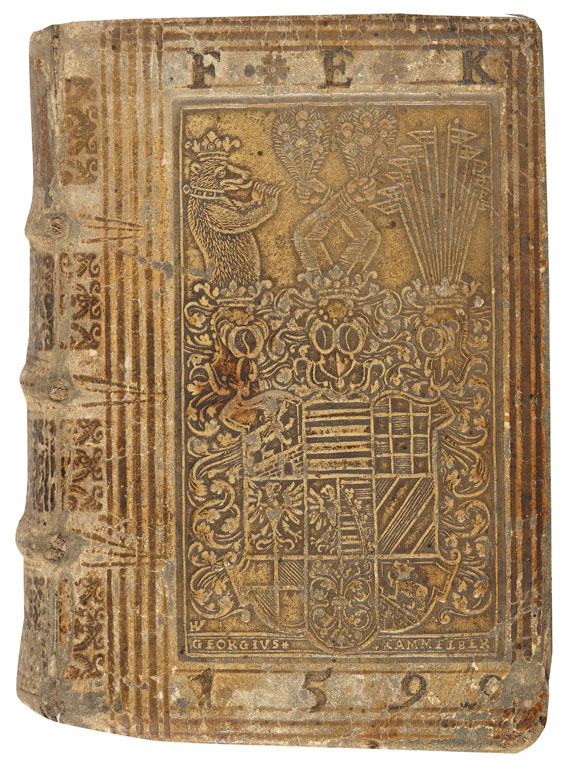 F E K
HV
GEORGIVS KAMMELBER
1590